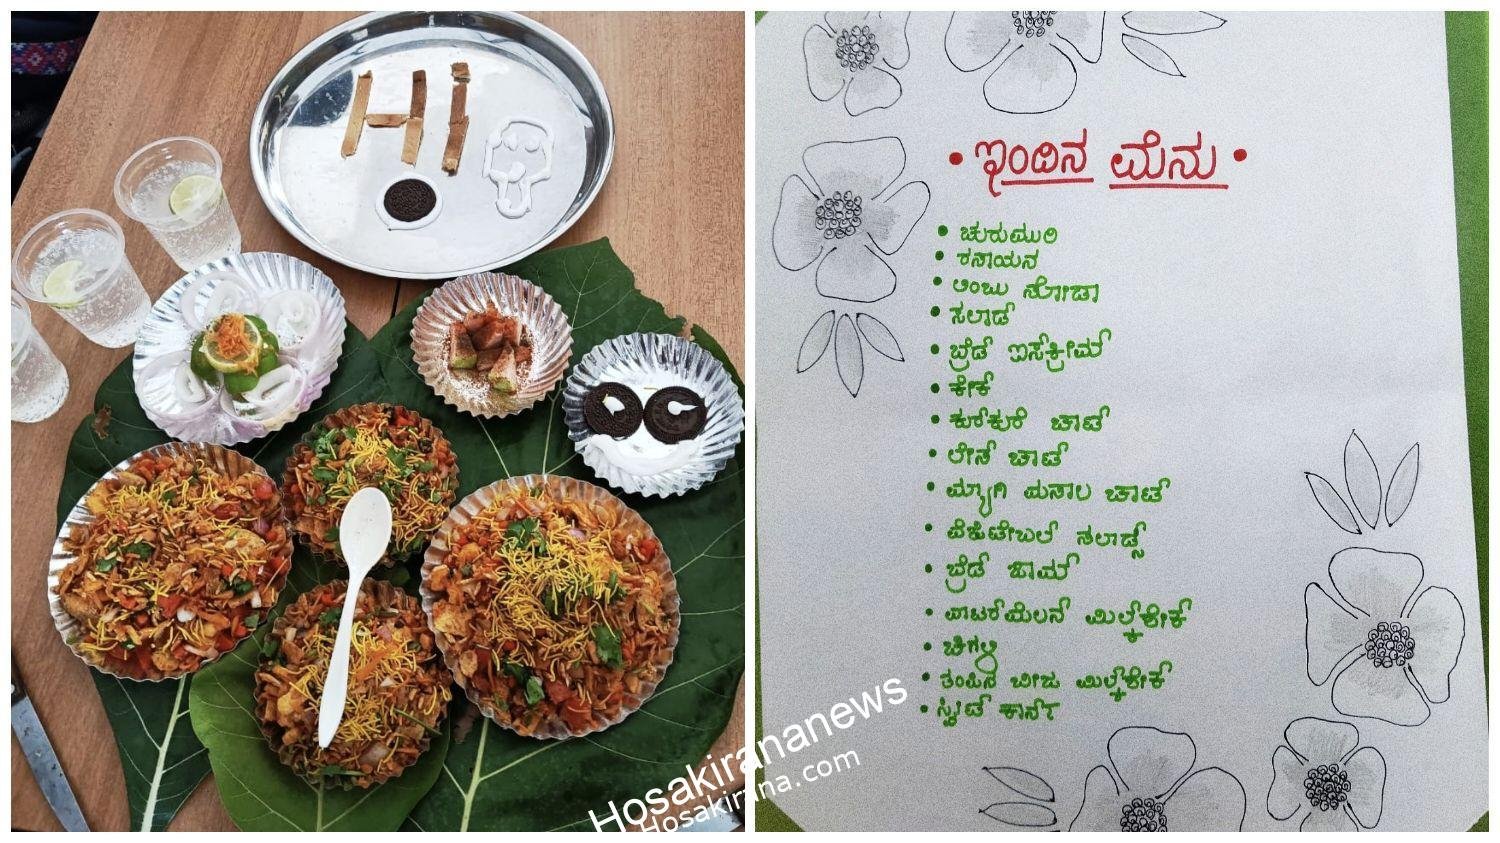 Hi
• ಇಂದಿನ ಮೆನು •
• ಚುರುಮುರಿ
• ರಸಾಯನ
• ಲಿಂಬು ಸೋಡಾ
• ಸಲಾಡ್
• ಬ್ರೆಡ್ ಐಸ್‌ಕ್ರೀಮ್
• ಕೇಕ್
• ಕುರ್‌ಕುರೆ ಚಾಟ್
• ಲೇಸ್ ಚಾಟ್
• ಮ್ಯಾಗಿ ಮಸಾಲ ಚಾಟ್
• ವೆಜಿಟೇಬಲ್ ಸಲಾಡ್ಸ್
• ಬ್ರೆಡ್ ಜಾಮ್
• ವಾಟರ್‌ಮೆಲನ್ ಮಿಲ್ಕ್‌ಶೇಕ್
• ಚಿಗಳ್ಳಿ
• ತಂಪಿನ ಬೀಜ ಮಿಲ್ಕ್‌ಶೇಕ್
• ಸ್ವೀಟ್ ಕಾರ್ನ್
Hosakirananews
Hosakirana.com